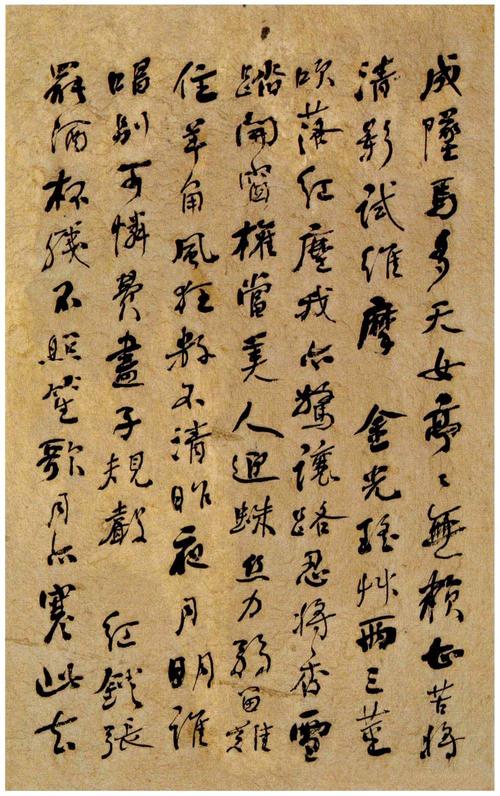 成墮馬多天女亭〻無賴甚苦將
清影試維摩 金光瑤艸兩三莖
吹落紅塵我亦驚讓路忍將香雪
踏開窗權當美人迎蛛絲力弱留難
住羊角風狂數不清昨夜月明誰
唱別可憐費盡子規聲 紅鐙張
罷酒杯殘不照笙歌月亦寒此去